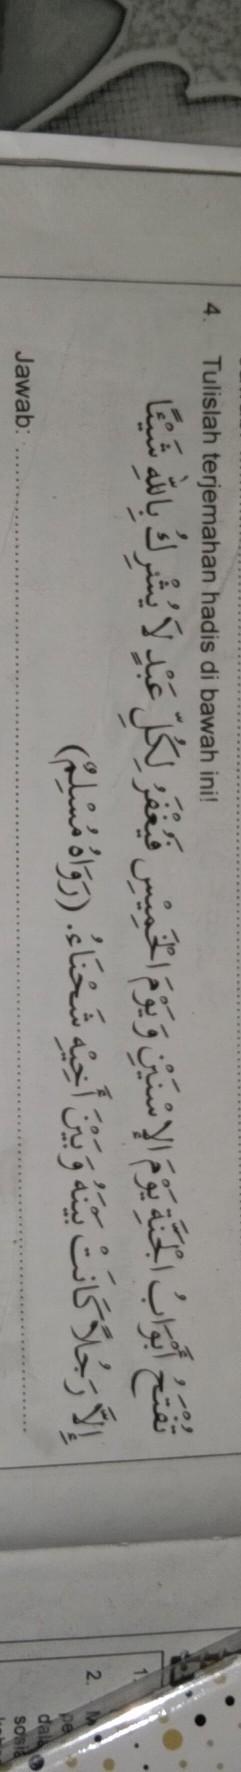 4. Tulislah terjemahan hadis di bawah ini!
تُفْتَحُ أَبْوَابُ الْجَنَّةِ يَوْمَ الْإِسْنَيْنِ وَ يَوْمَ الْخَمِيْسِ فَيُغْفَرُ لِكُلِّ عَبْدٍ لَا يُشْرِكُ بِاللّٰهِ شَيْئًا
إِلَّا رَجُلًا كَانَتْ بَيْنَهُ وَ بَيْنَ أَخِيْهِ شَحْنَاءُ. (رَوَاهُ مُسْلِمٌ)
Jawab: ........................................................................
1.
2. M
pe
dala
sosia